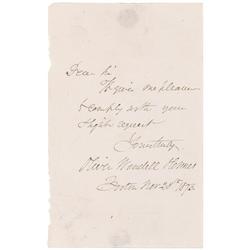 Dear Sir
It gives me pleasure
to comply with your
slight request
Yours truly
Oliver Wendell Holmes
Boston Nov 20th 1873